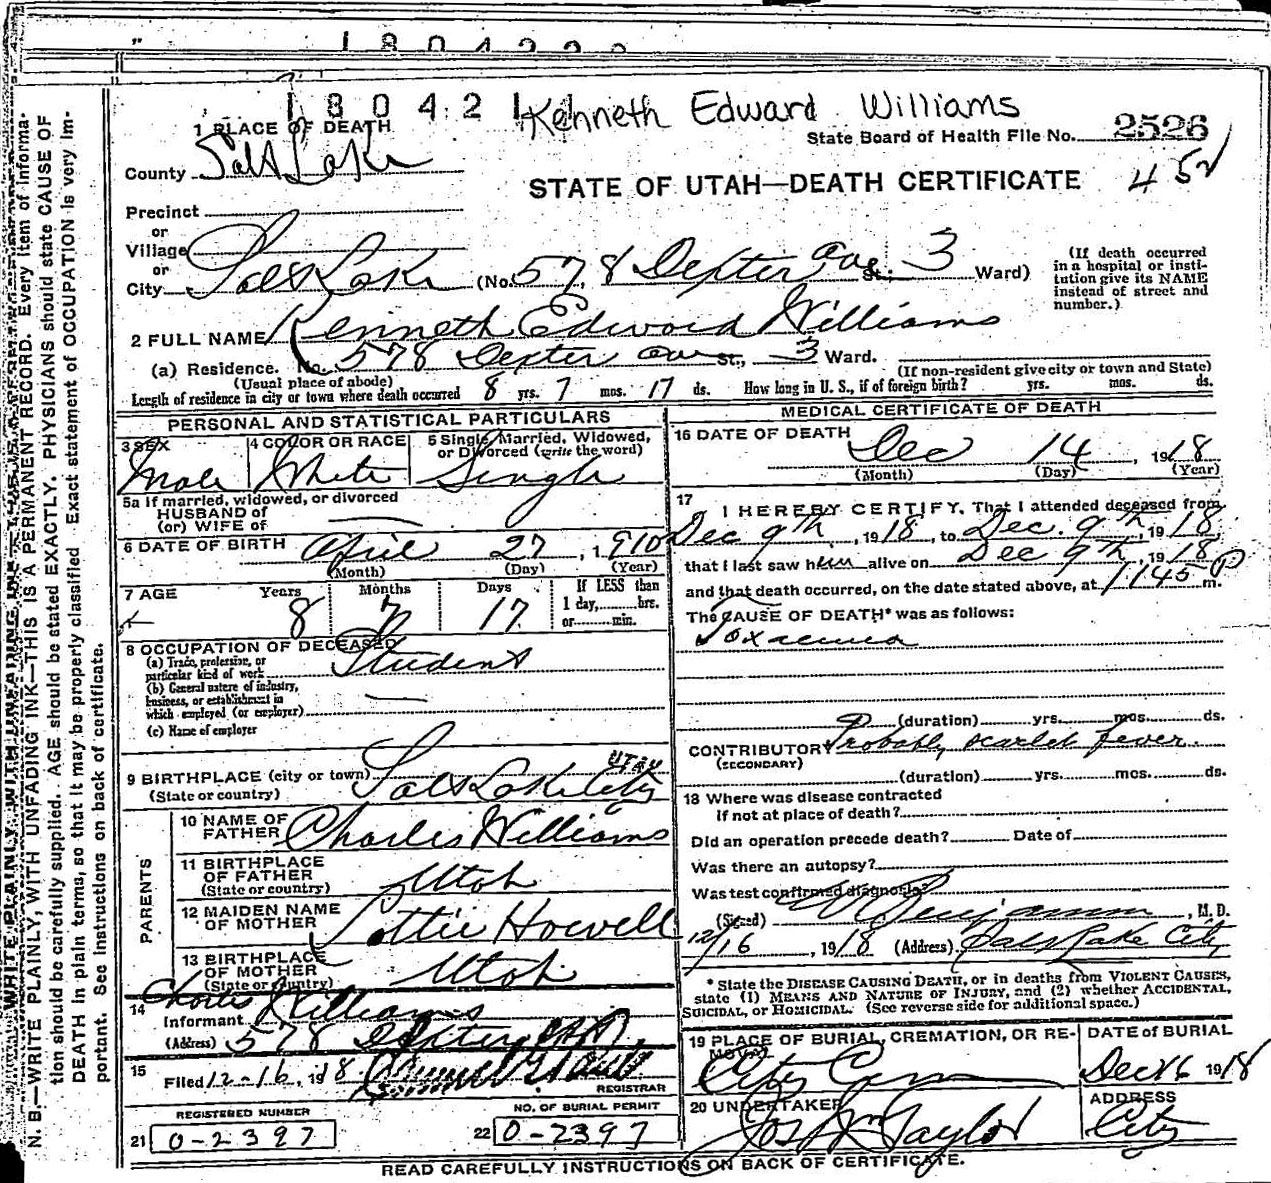 180422
180421
Kenneth Edward Williams
State Board of Health File No. 2526
1 PLACE OF DEATH
County Salt Lake
STATE OF UTAH—DEATH CERTIFICATE
452
Precinct
or
Village
or
City Salt Lake (No. 578 Dexter Ave St.; 3 Ward)
(If death occurred in a hospital or institution give its NAME instead of street and number.)
2 FULL NAME Kenneth Edward Williams
(a) Residence. No. 578 Dexter Ave St., 3 Ward. (If non-resident give city or town and State)
(Usual place of abode)
Length of residence in city or town where death occurred 8 yrs. 7 mos. 17 ds. How long in U. S., if of foreign birth? yrs. mos. ds.
PERSONAL AND STATISTICAL PARTICULARS
3 SEX
Male
4 COLOR OR RACE
White
5 Single, Married, Widowed, or Divorced (write the word)
Single
5a If married, widowed, or divorced
HUSBAND of
(or) WIFE of
6 DATE OF BIRTH April 27, 1910
(Month) (Day) (Year)
7 AGE Years Months Days If LESS than
8 7 17 1 day, hrs.
or min.
8 OCCUPATION OF DECEASED
(a) Trade, profession, or
particular kind of work Student
(b) General nature of industry,
business, or establishment in
which employed (or employer)
(c) Name of employer
9 BIRTHPLACE (city or town) Salt Lake City UTAH
(State or country)
PARENTS
10 NAME OF
FATHER Charles Williams
11 BIRTHPLACE
OF FATHER Utah
(State or country)
12 MAIDEN NAME
OF MOTHER Lottie Howell
13 BIRTHPLACE
OF MOTHER Utah
(State or country)
14 Informant Charles Williams
(Address) 578 Dexter Ave
15 Filed 12-16, 1918
REGISTRAR
REGISTERED NUMBER
21 0-2397
NO. OF BURIAL PERMIT
22 0-2397
MEDICAL CERTIFICATE OF DEATH
16 DATE OF DEATH Dec 14, 1918
(Month) (Day) (Year)
17 I HEREBY CERTIFY, That I attended deceased from
Dec 9th, 1918, to Dec. 9th, 1918,
that I last saw him alive on Dec 9th, 1918
and that death occurred, on the date stated above, at 1145 P m.
The CAUSE OF DEATH* was as follows:
Toxaemia
(duration) yrs. mos. ds.
CONTRIBUTORY Probably scarlet fever
(SECONDARY)
(duration) yrs. mos. ds.
18 Where was disease contracted
if not at place of death?
Did an operation precede death? Date of
Was there an autopsy?
Was test confirmed diagnosis?
(Signed) Benjamin, M. D.
12/16, 1918 (Address) Salt Lake City
* State the DISEASE CAUSING DEATH, or in deaths from VIOLENT CAUSES,
state (1) MEANS AND NATURE OF INJURY, and (2) whether ACCIDENTAL,
SUICIDAL, or HOMICIDAL. (See reverse side for additional space.)
19 PLACE OF BURIAL, CREMATION, OR REMOVAL
City Cem
DATE of BURIAL
Dec 16 1918
20 UNDERTAKER
Jos Wm Taylor
ADDRESS
City
READ CAREFULLY INSTRUCTIONS ON BACK OF CERTIFICATE.
N. B.—WRITE PLAINLY, WITH UNFADING INK—THIS IS A PERMANENT RECORD. Every item of information should be carefully supplied. AGE should be stated EXACTLY. PHYSICIANS should state CAUSE OF DEATH in plain terms, so that it may be properly classified. Exact statement of OCCUPATION is very important. See instructions on back of certificate.